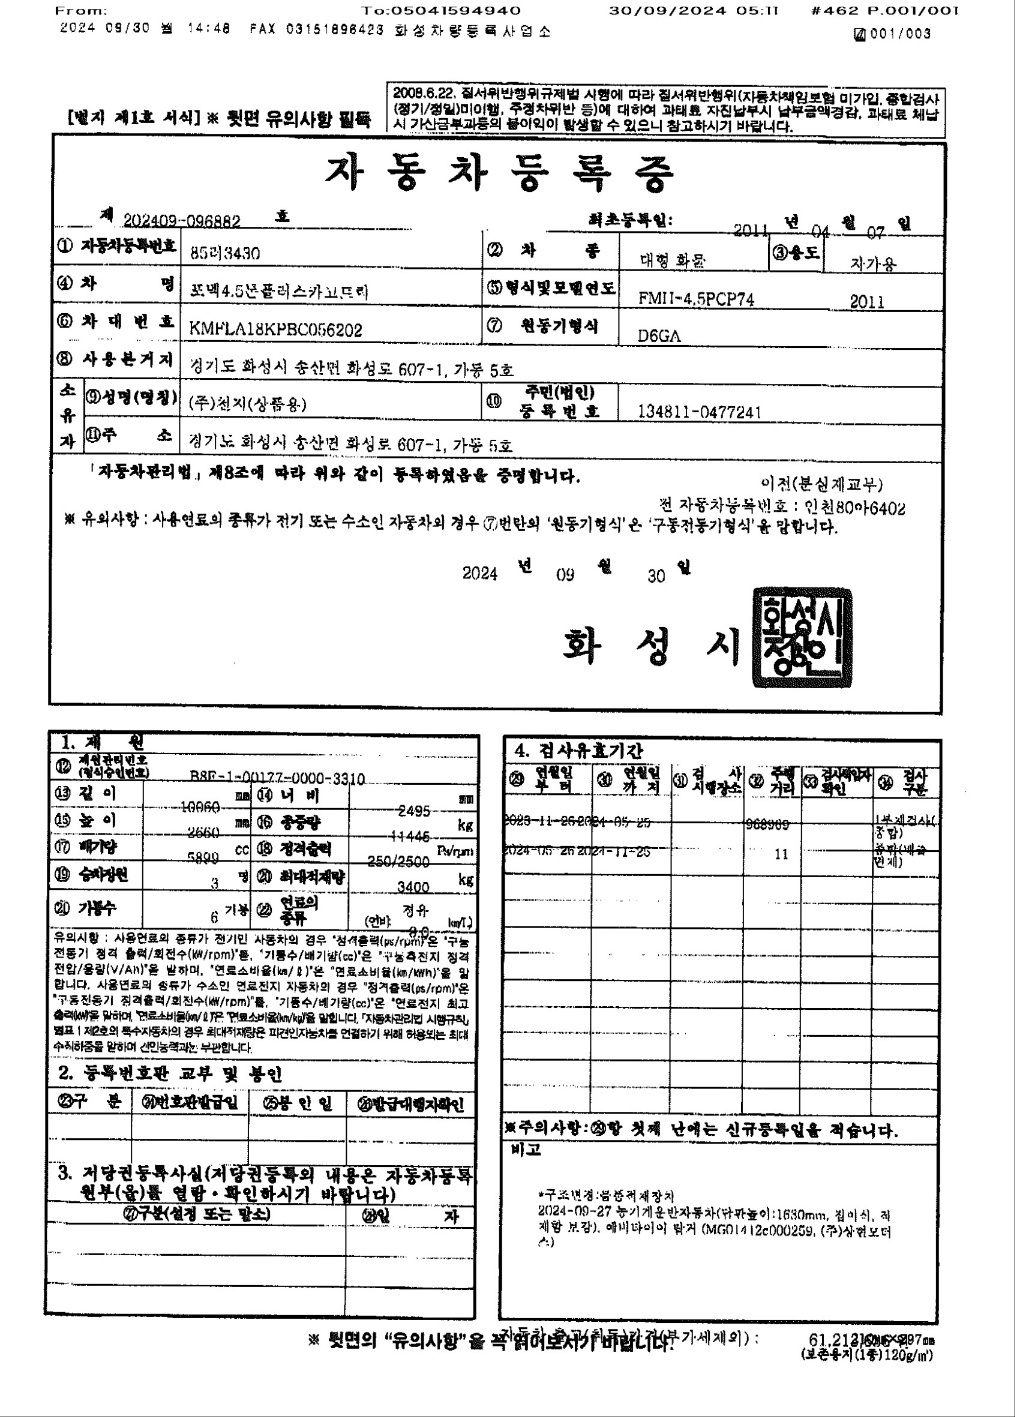 From: To:05041594940 30/09/2024 05:11 #462 P.001/001
2024 09/30 월 14:48 FAX 03151896423 화성차량등록사업소 001/003
[별지 제1호 서식] ※ 뒷면 유의사항 필독
2008.6.22. 질서위반행위규제법 시행에 따라 질서위반행위(자동차책임보험 미가입, 종합검사
(정기/정밀)미이행, 주정차위반 등)에 대하여 과태료 자진납부시 납부금액경감, 과태료 체납
시 가산금부과등의 불이익이 발생할 수 있으니 참고하시기 바랍니다.
자동차등록증
제 202409-096882 호 최초등록일: 2011 년 04 월 07 일
① 자동차등록번호 85러3430 ② 차 종 대형 화물 ③용도 자가용
④ 차 명 포맥4.5톤플러스카고트럭 ⑤형식및모델연도 FMII-4.5PCP74 2011
⑥ 차대번호 KMFLA18KPBC056202 ⑦ 원동기형식 D6GA
⑧ 사용본거지 경기도 화성시 송산면 화성로 607-1, 가동 5호
소유자 ⑨성명(명칭) (주)천지(상품용) ⑩ 주민(법인)등록번호 134811-0477241
⑪주 소 경기도 화성시 송산면 화성로 607-1, 가동 5호
「자동차관리법」 제8조에 따라 위와 같이 등록하였음을 증명합니다.
이전(분실재교부)
전 자동차등록번호 : 인천80아6402
※ 유의사항 : 사용연료의 종류가 전기 또는 수소인 자동차의 경우 ⑦번란의 '원동기형식'은 '구동전동기형식'을 말합니다.
2024 년 09 월 30 일
화 성 시
화성시장인
1. 제 원
⑫ 제원관리번호(형식승인번호) B8F-1-00177-0000-3310
⑬ 길이 10060 mm ⑭ 너비 2495 mm
⑮ 높이 2660 mm ⑯ 총중량 11445 kg
⑰ 배기량 5899 cc ⑱ 정격출력 250/2500 Ps/rpm
⑲ 승차정원 3 명 ⑳ 최대적재량 3400 kg
㉑ 기통수 6 기통 ㉒ 연료의 종류 경유 (연비 km/L)
유의사항 : 사용연료의 종류가 전기인 자동차의 경우 "정격출력(ps/rpm)"은 "구동
전동기 정격 출력/회전수(kW/rpm)"를, "기통수/배기량(cc)"은 "구동축전지 정격
전압/용량(V/Ah)"을 말하며, "연료소비율(km/ℓ)"은 "연료소비율(km/kWh)"을 말
합니다. 사용연료의 종류가 수소인 연료전지 자동차의 경우 "정격출력(ps/rpm)"은
"구동전동기 정격출력/회전수(kW/rpm)"를, "기통수/배기량(cc)"은 "연료전지 최고
출력(kW)"을 말하며, "연료소비율(km/ℓ)"은 "연료소비율(km/kg)"을 말합니다. 「자동차관리법 시행규칙」
별표 1 제2호의 특수자동차의 경우 최대적재량은 피견인자동차를 연결하기 위해 허용되는 최대
수직하중을 말하며 견인능력과는 무관합니다.
2. 등록번호판 교부 및 봉인
㉓구 분 ㉔번호판발급일 ㉕봉인일 ㉖발급대행자확인
3. 저당권등록사실(저당권등록의 내용은 자동차등록
원부(을)를 열람·확인하시기 바랍니다)
㉗구분(설정 또는 말소) ㉘일 자
4. 검사유효기간
㉙ 연월일부터 ㉚ 연월일까지 ㉛ 검사시행장소 ㉜ 주행거리 ㉝ 검사책임자확인 ㉞ 검사구분
2023-11-26 2024-05-25 968909
2024-05-26 2024-11-25 11
※주의사항:㉙항 첫째 난에는 신규등록일을 적습니다.
비고
*구조변경:물품적재장치
2024-09-27 농기계운반자동차(난판높이:1630mm, 접이식, 적
재함 보강), 에비다이어 탑거 (MG01412c000259, (주)상현모터
스)
※ 뒷면의 "유의사항"을 꼭 읽어보시기 바랍니다.
자동차 출고(취득)가격(부가세제외) :
(보존용지(1종)120g/㎡)